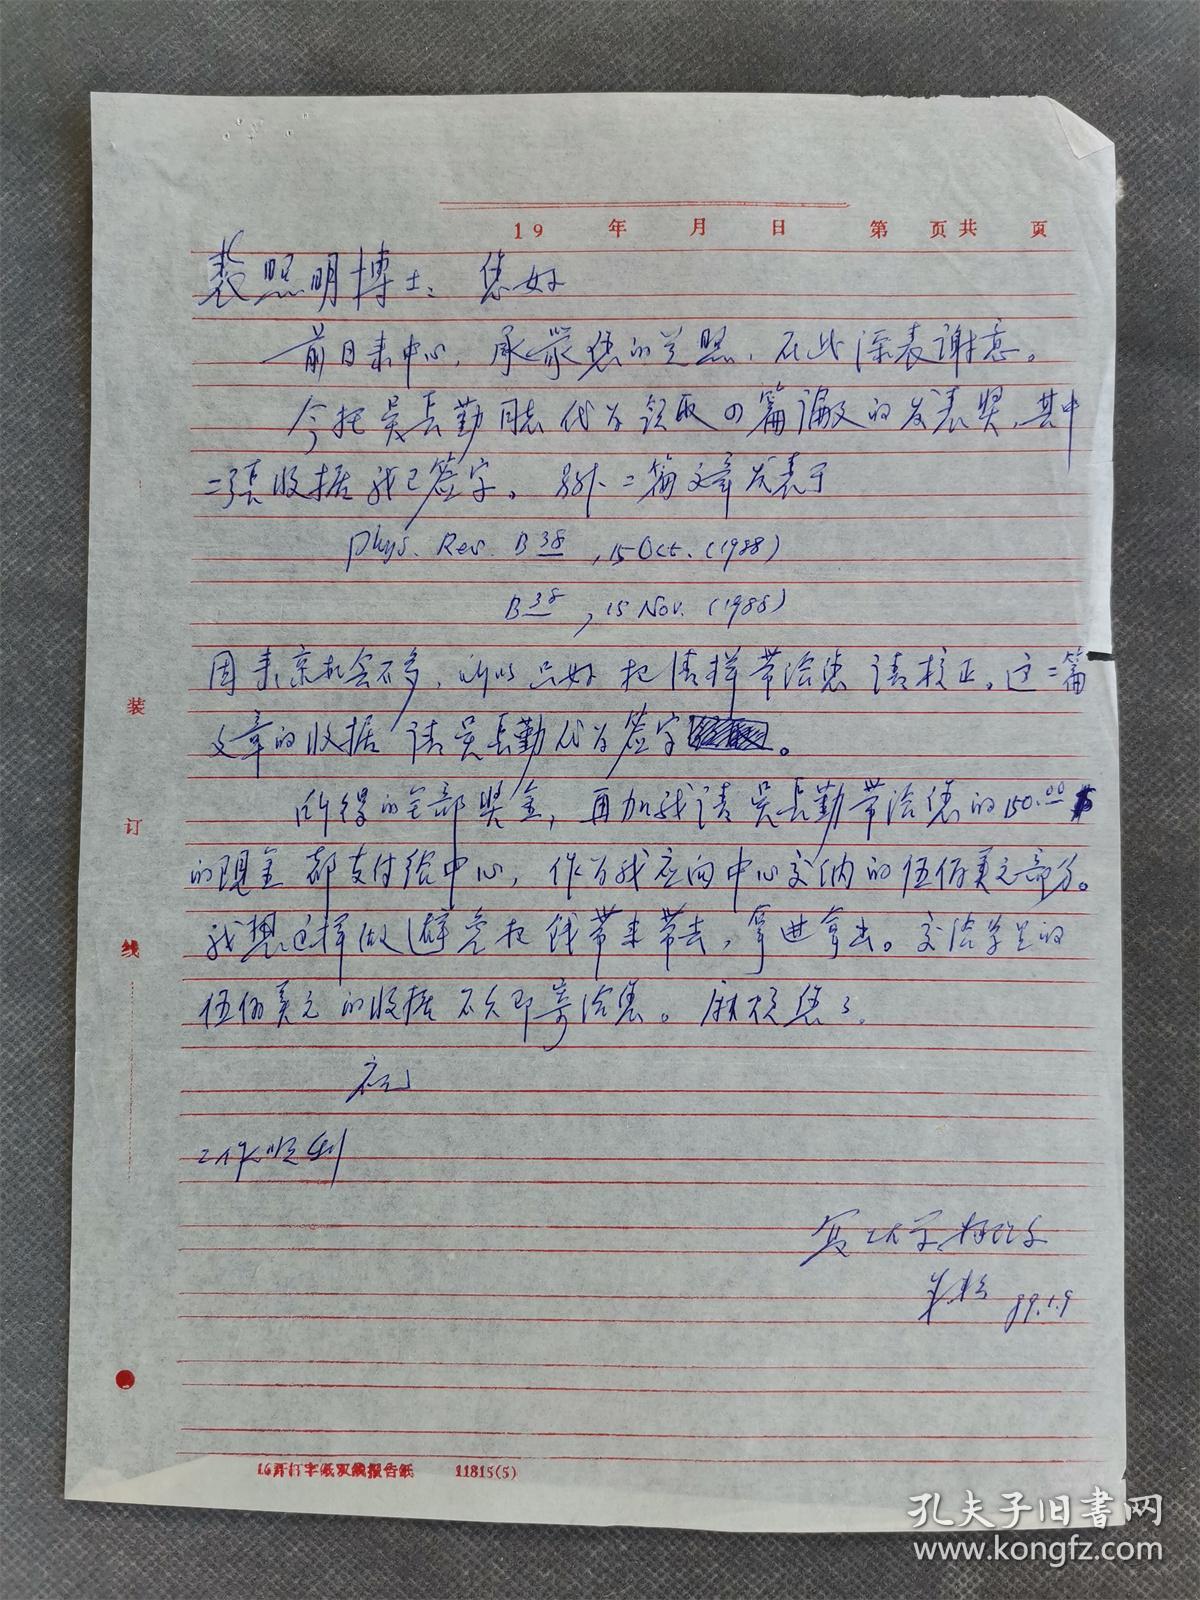 19 年 月 日 第 页共 页
裴照明博士：您好
前日来中心，承蒙您的关照，在此深表谢意。
今托吴长勤同志代为领取四篇论文的发表奖，其中
二张收据我已签字。另外二篇文章发表于
Phys. Rev. B 38, 15 Oct. (1988)
B 38, 15 Nov. (1988)
因来京机会不多，所以只好把清样带给您请校正。这二篇
文章的收据请吴长勤代为签字。
所得的全部奖金，再加我请吴长勤带给您的150.00
的现金都支付给中心，作为我应向中心交纳的伍佰美元部分。
我想这样做避免把钱带来带去，拿进拿出。交给学生的
伍佰美元的收据不久即寄给您。麻烦您了。
祝
工作顺利
89.1.9
装
订
线
16开打字纸双线报告纸 11815(5)
孔夫子旧书网
www.kongfz.com